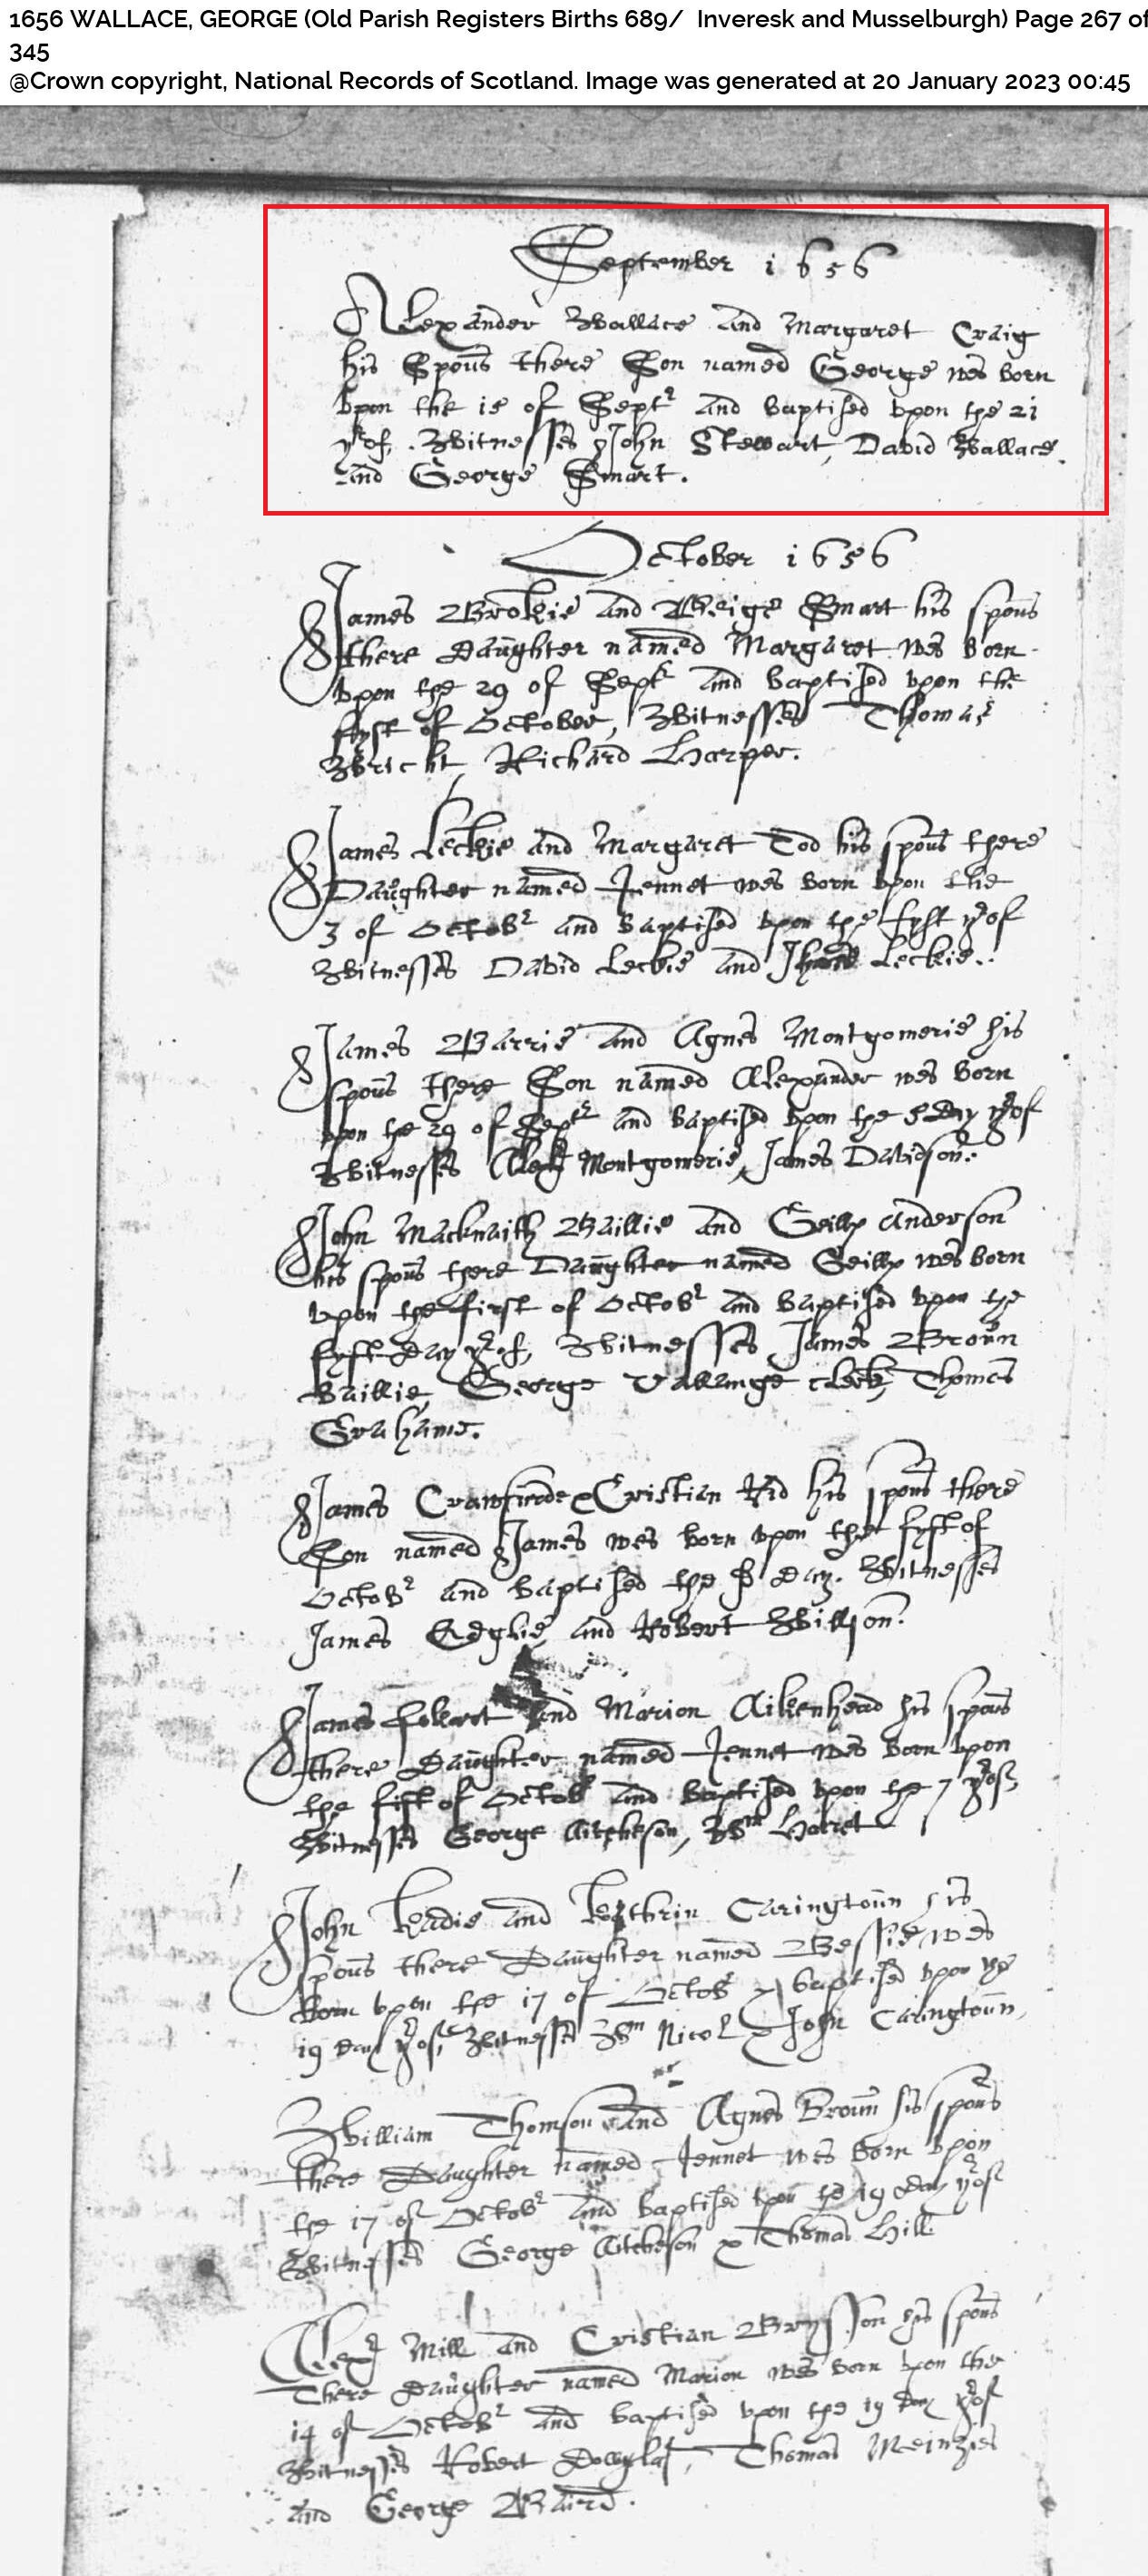 1656 WALLACE, GEORGE (Old Parish Registers Births 689/ Inveresk and Musselburgh) Page 267 of
345
@Crown copyright, National Records of Scotland. Image was generated at 20 January 2023 00:45
September 1656
Alexander Wallace and Margaret Craig
his Spous there Son named George wes born
vpon the 15 of Septr and baptised vpon the 21
yrof. Witnesses John Stewart, David Wallace
and George Smart.
October 1656
James Brokie and Smart his spous
there Daughter named Margaret wes born
vpon the 29 of Septr and baptised vpon the
fyft of October, Witnesses Thomas
Wricht, Richard Harper.
James Leckie and Margaret Tod his spous there
Daughter named Jennet wes born vpon the
3 of Octobr and baptised vpon the fyft yrof
Witnesses David Leckie and Leckie.
James Barrie and Agnes Montgomerie his
spous there Son named Alexander wes born
vpon the 29 of Septr and baptised vpon the 5 day yrof
Witnesses Alexr Montgomerie, James Davidson.
John Macknaith Baillie and Geillis Anderson
his spous there Daughter named Geillis wes born
vpon the first of Octobr and baptised vpon the
fyft day yrof, Witnesses James Broun
Baillie, George Vallange clerk, Thomas
Grahame.
James Crawfurde & Cristian Rid his spous there
Son named James wes born vpon the fyft of
Octobr and baptised the day. Witnesses
James Edglie and Robert Willson.
James and Marion Aikenhead his spous
there Daughter named Jennet wes born vpon
the fift of Octobr and baptised vpon the 7 yrof
Witnesses George Aitcheson, Wm
John Keadie and Kathrin Caringtoun his
spous there Daughter named Bessie wes
born vpon the 17 of Octobr & baptised vpon ye
19 day yrof, Witnesses Wm Nicol & John Caringtoun,
William Thomson and Agnes Broun his spous
there Daughter named Jennet wes born vpon
the 17 of Octobr and baptised vpon the 19 day yrof
Witnesses George Aitcheson & Thomas Hill
Alexr Mill and Cristian Bryson his spous
There Daughter named Marion wes born vpon the
14 of Octobr and baptised vpon the 19 day yrof
Witnesses Robert Dowglas, Thomas Meinzies
and George Baird.